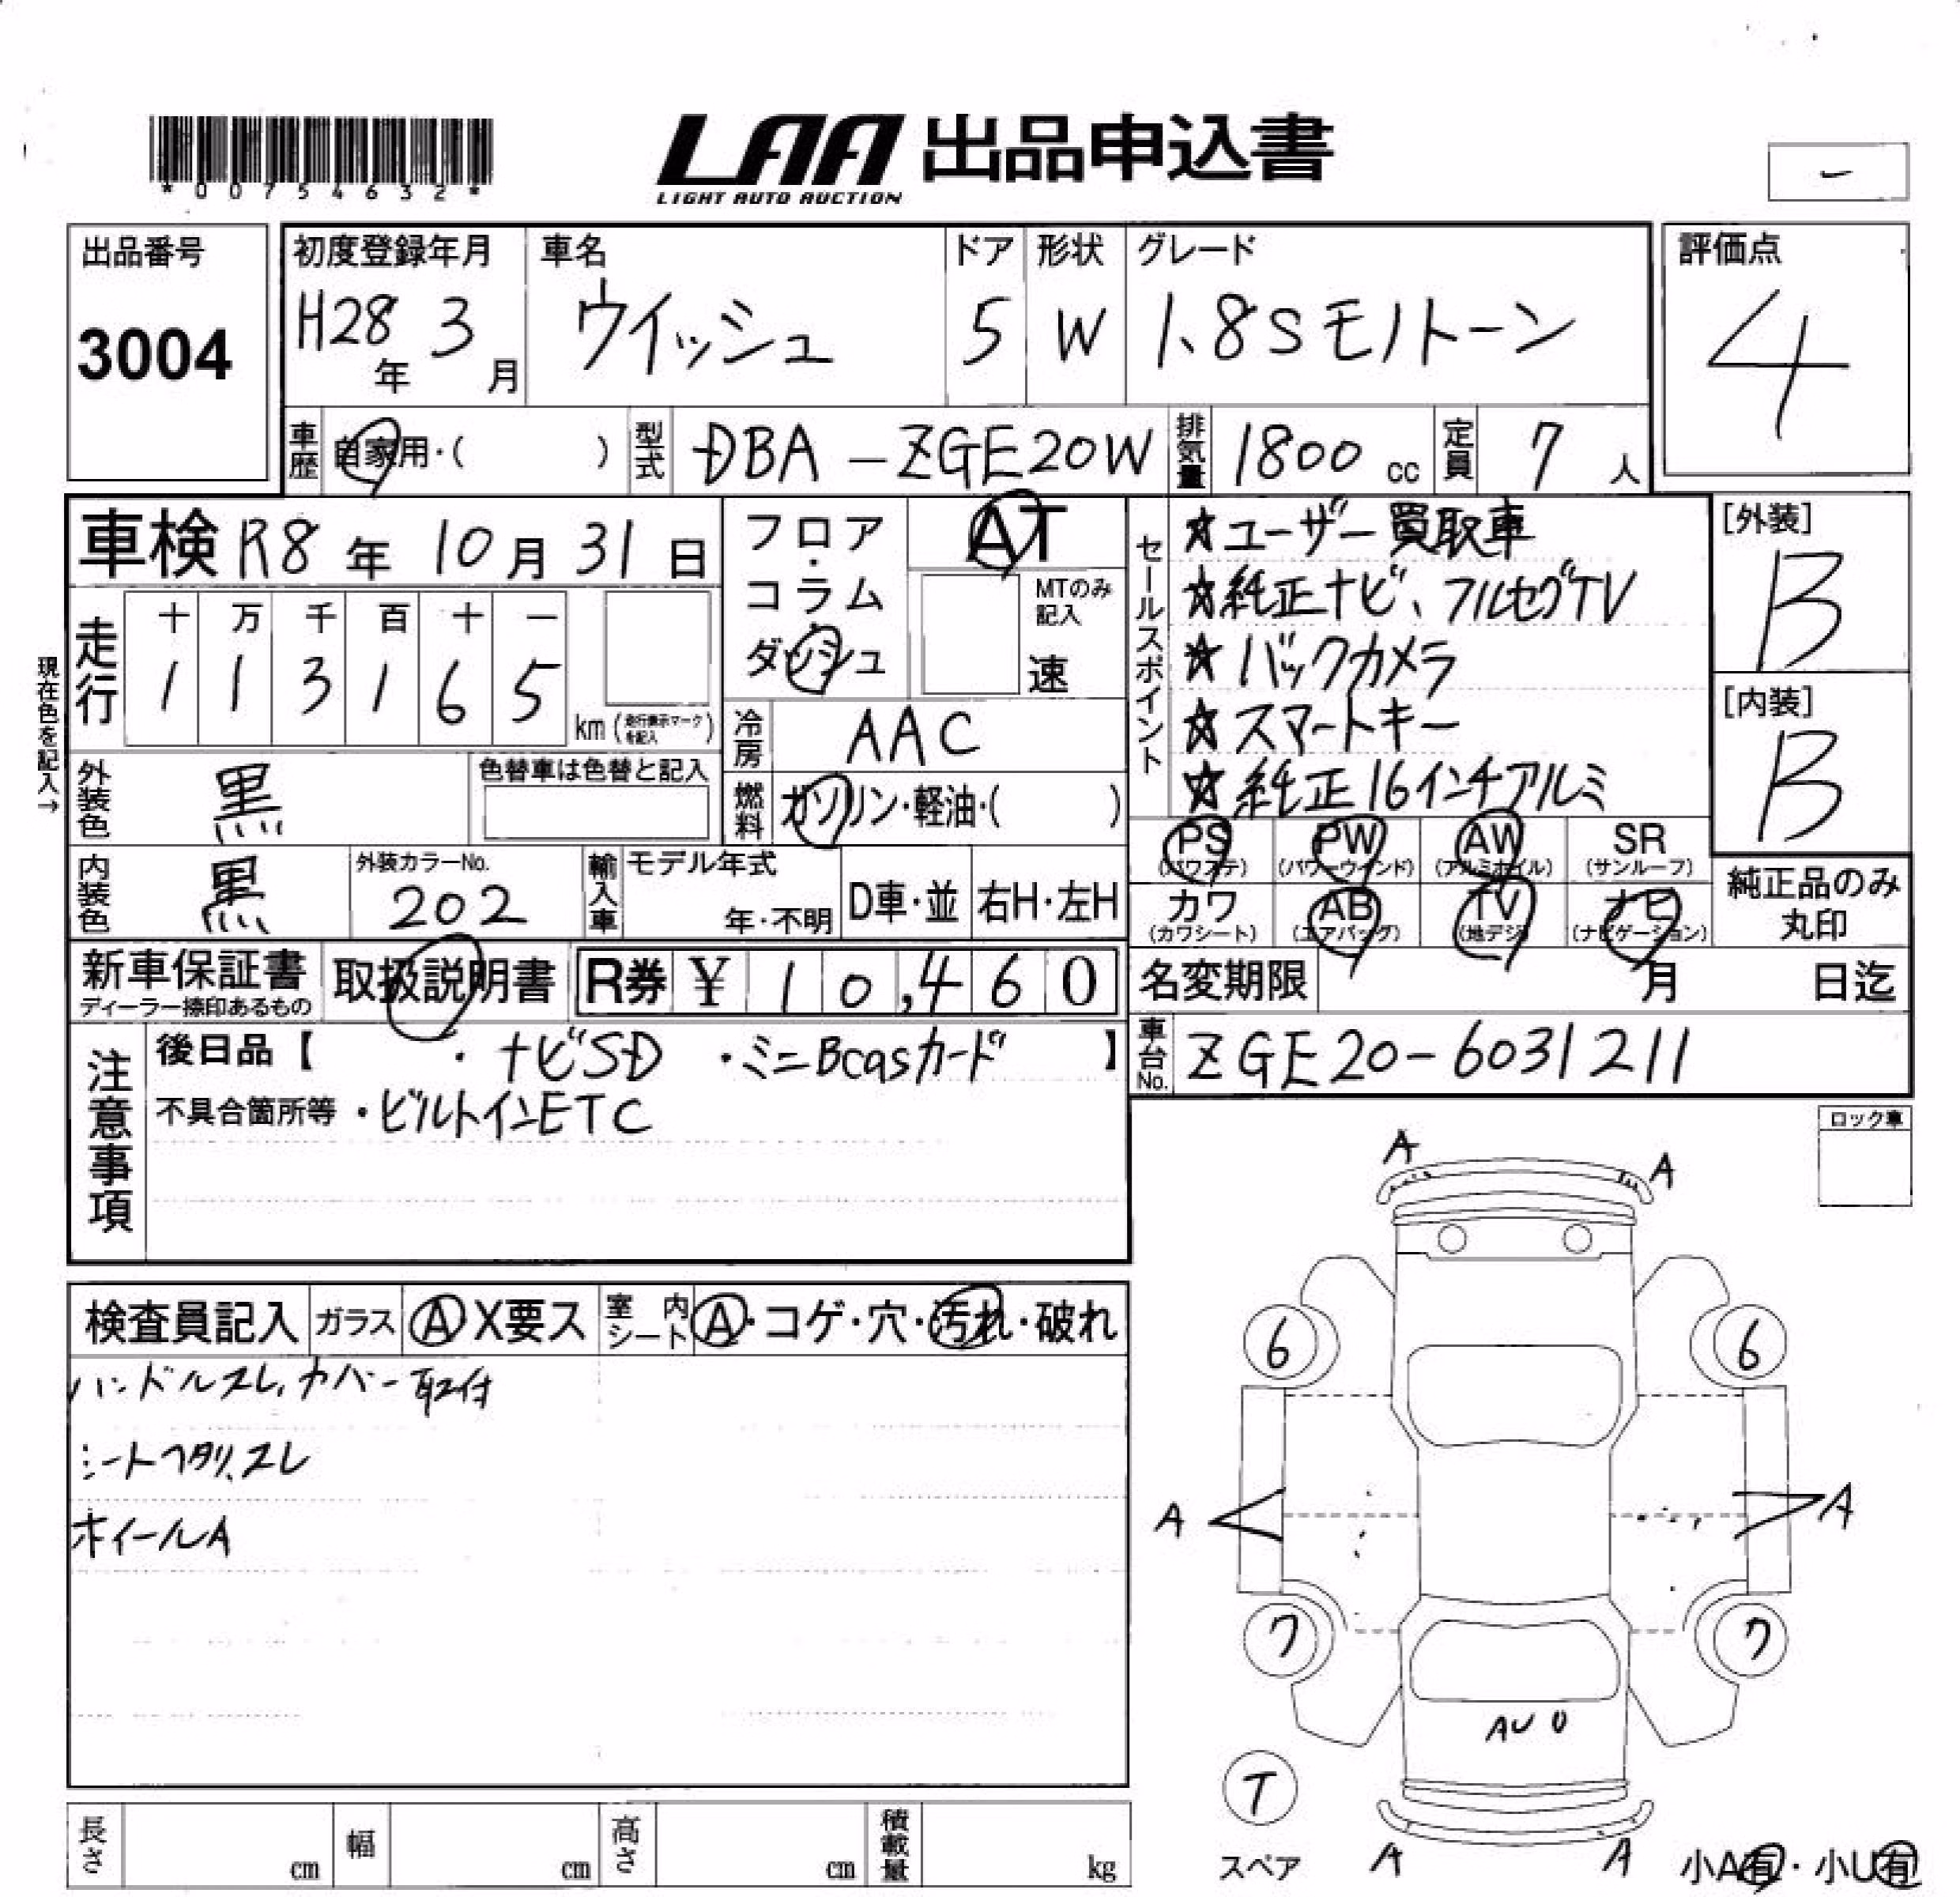 *00754632*
LAA 出品申込書
LIGHT AUTO AUCTION
出品番号
3004
初度登録年月
H28年 3月
車名
ウイッシュ
ドア
5
形状
W
グレード
1.8Sモノトーン
評価点
4
車歴 自家用・( )
型式 DBA-ZGE20W
排気量 1800 cc
定員 7 人
車検 R8年 10月 31日
フロア・コラム・ダッシュ
AT
MTのみ記入
速
走行
十 万 千 百 十 一
1 1 3 1 6 5
km (走行表示マークを記入)
現在色を記入→
冷房 AAC
外装色 黒
色替車は色替と記入
燃料 ガソリン・軽油・( )
内装色 黒
外装カラーNo.
202
輸入車
モデル年式
年・不明
D車・並
右H・左H
セールスポイント
☆ユーザー買取車
☆純正ナビ、フルセグTV
☆バックカメラ
☆スマートキー
☆純正16インチアルミ
[外装]
B
[内装]
B
PS (パワステ)
PW (パワーウィンド)
AW (アルミホイル)
SR (サンルーフ)
カワ (カワシート)
AB (エアバッグ)
TV (地デジ)
ナビ (ナビゲーション)
純正品のみ丸印
新車保証書
ディーラー捺印あるもの
取扱説明書
R券 ¥ 10,460
名変期限 月 日迄
車台No. ZGE20-6031211
注意事項
後日品【 ・ナビSD ・ミニBcasカード 】
不具合箇所等 ・ビルトインETC
ロック車
検査員記入
ガラス A X要ス
室内シート A・コゲ・穴・汚れ・破れ
ハンドルスレ、カバー取付
シートヘタリ、スレ
ホイールA
A A
6 6
A A
7 7
AU0
T
スペア
A A
小A有・小U有
長さ cm
幅 cm
高さ cm
積載量 kg